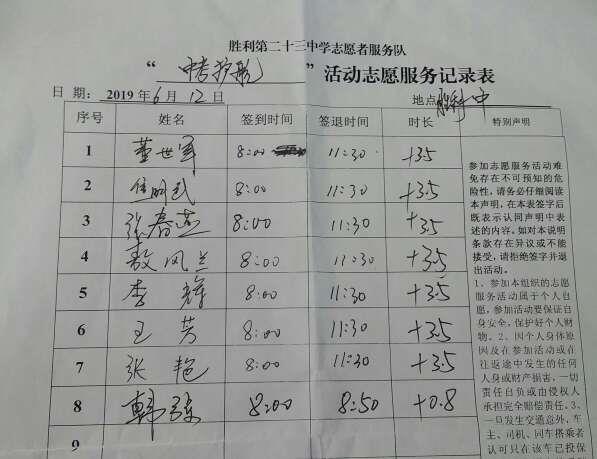 胜利第二十三中学志愿者服务队
“中考护航”活动志愿服务记录表
日 期：2019 年 6 月 12 日 地点
序号 姓名 签到时间 签退时间 时长 特别声明
1 董世军 8:00 11:30 +3.5
2 8:00 11:30 +3.5
3 张春燕 8:00 11:30 +3.5
4 敖风兰 8:00 11:30 +3.5
5 李辉 8:00 11:30 +3.5
6 王芳 8:00 11:30 +3.5
7 张艳 8:00 11:30 +3.5
8 韩 8:00 8:50 +0.8
9
参加志愿服务活动难
免存在不可预知的危
险性，请务必仔细阅读
本声明，在本表签字后
既表示认同声明中表
述的内容。如对本说明
条款存在异议或不能
接受，请拒绝签字并退
出活动。
1、参加本组织的志愿
服务活动属于个人自
愿，参加活动要保证自
身安全，保护好个人财
物。2、因个人身体原
因及在参加活动或在
往返途中发生的任何
人身或财产损害，一切
责任自负或由侵权人
承担完全赔偿责任。3、
一旦发生交通意外，车
主、司机、同车搭乘者
认可只在该车已投保